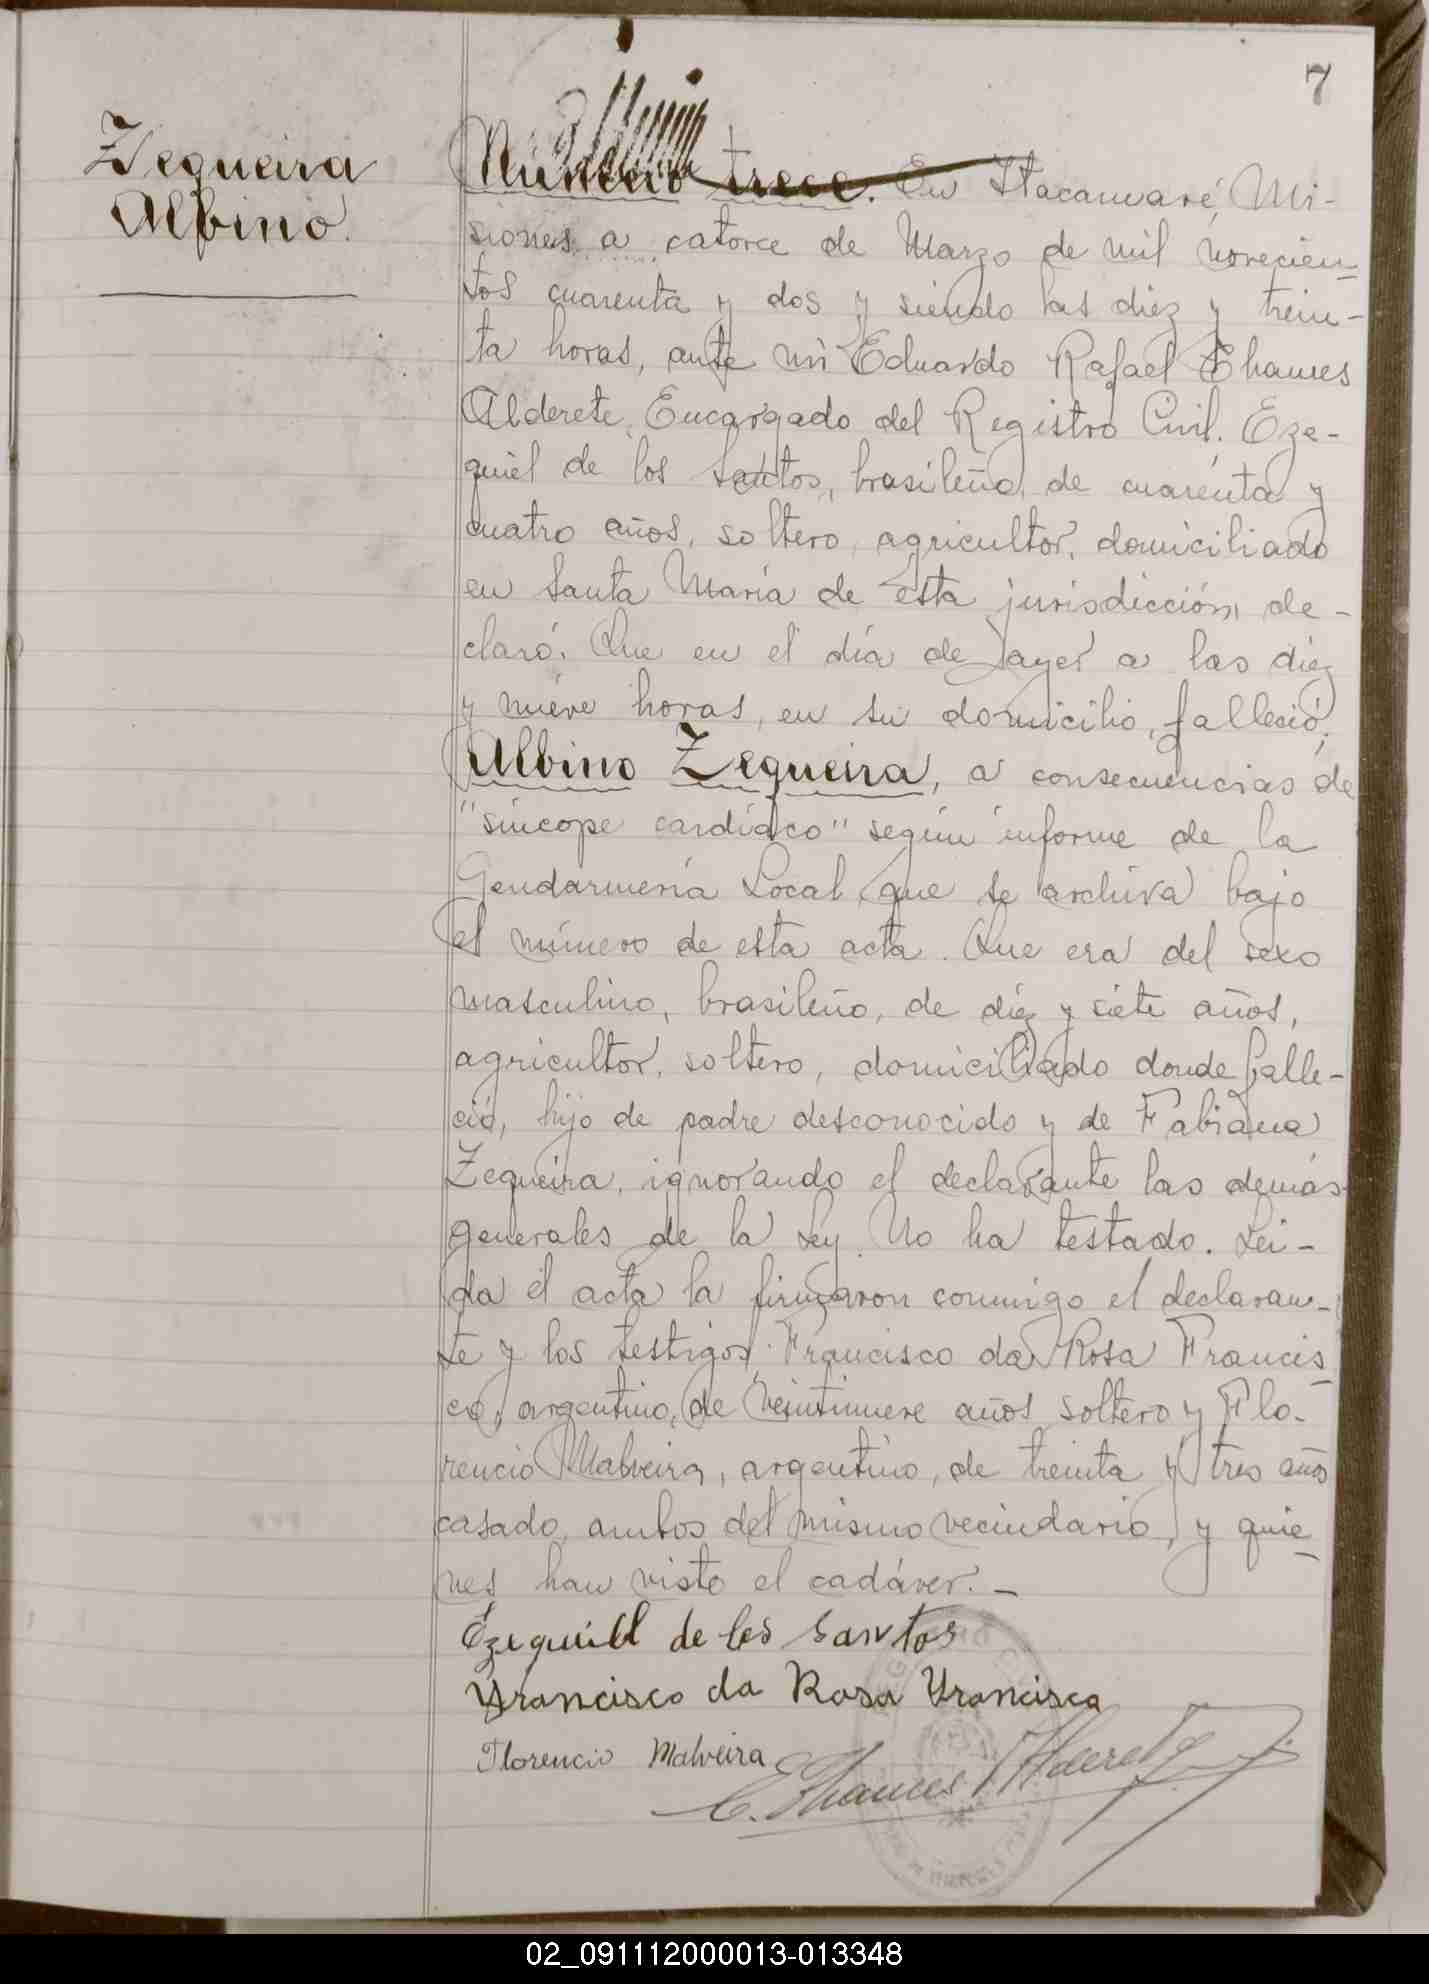 7
Zequeira
Albino.
Número trece. En Itacaruaré, Mi-
siones a catorce de Marzo de mil novecien-
tos cuarenta y dos y siendo las diez y trein-
ta horas, ante mí Eduardo Rafael Thames
Alderete, Encargado del Registro Civil. Eze-
quiel de los Santos, brasileño, de cuarenta y
cuatro años, soltero, agricultor, domiciliado
en Santa María de esta jurisdicción, de-
claró. Que en el día de ayer a las diez
y nueve horas, en su domicilio, falleció,
Albino Zequeira, a consecuencias de
"síncope cardíaco" según informe de la
Gendarmería Local que se archiva bajo
el número de esta acta. Que era del sexo
masculino, brasileño, de diez y siete años,
agricultor, soltero, domiciliado donde falle-
ció, hijo de padre desconocido y de Fabiana
Zequeira, ignorando el declarante las demás
generales de la Ley. No ha testado. Lei-
da el acta la firmaron conmigo el declaran-
te y los testigos, Francisco da Rosa Francis-
co, argentino, de veintinueve años soltero y Flo-
rencio Malveira, argentino, de treinta y tres años
casado, ambos del mismo vecindario, y quie-
nes han visto el cadáver. -
Ezequiel de los Santos
Francisco da Rosa Francisca
Florencio Malveira
E. Thames Alderete
02_091112000013-013348